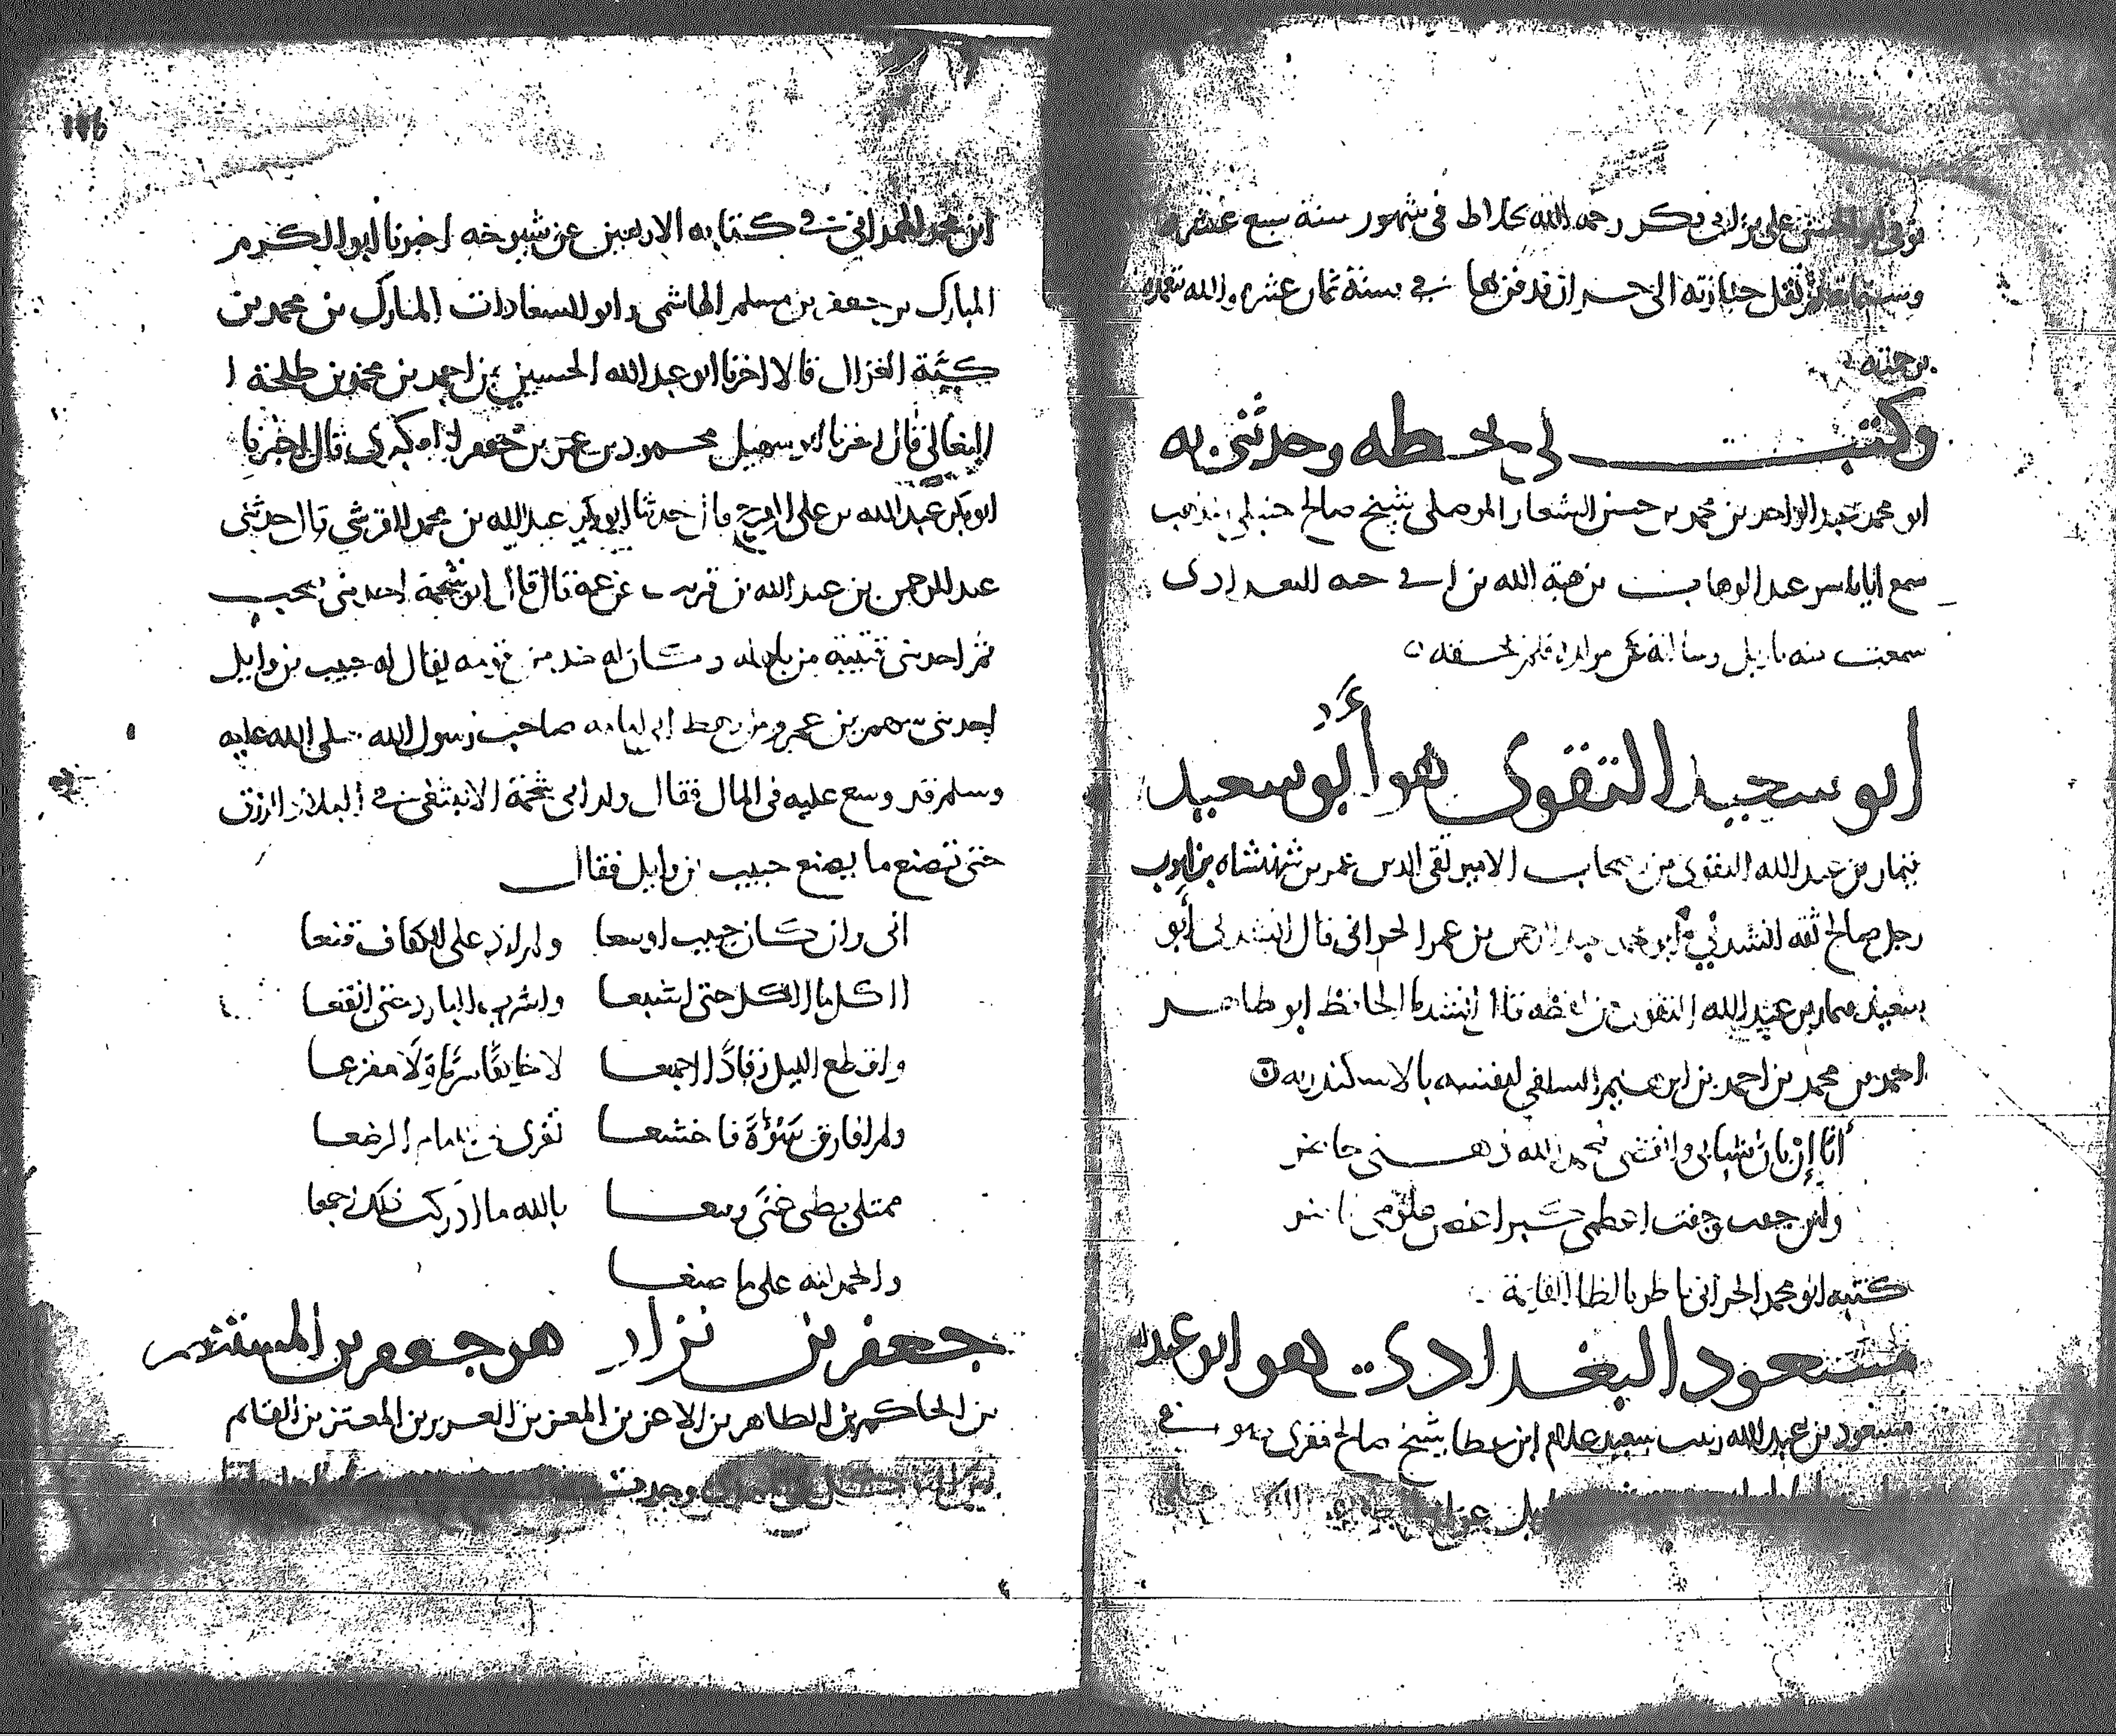 توفي ابو الحسن علي بن ابي بكر رحمه الله بخلاط في شهور سنة سبع عشره
وستمائة ونقل جنازته الى حران فدفن بها في سنة ثمان عشره والله يتغمده
برحمته
وكتب لي بخطه وحدثني به
ابو محمد عبد الواحد بن محمد بن حسن الشعار الموصلي شيخ صالح حنبلي المذهب
سمع ابا ياسر عبد الوهاب بن هبة الله بن ابي حبه البغدادي
سمعت منه باربل وسالته عن مولده فلم يحققه
ابو سعيد التقوي هو أبو سعيد
بن عبد الله التقوي من اصحاب الامير تقي الدين عمر بن شهنشاه بن ايوب
رجل صالح ثقه انشدني ابو محمد عبد الرحمن بن عمر الحراني قال انشدني أبو
سعيد بن عبد الله التقوي من لفظه قال انشدنا الحافظ ابو طاهر
احمد بن محمد بن احمد بن ابرهيم السلفي لنفسه بالاسكندريه
أنا إن بان شبابي وانقضى فبحمد الله ذهني حاضر
ولئن خفت وجفت اعظمي كبرا غصن علومي ناضر
كتبه ابو محمد الحراني
مسعود البغدادي هو ابو عبد الله
مسعود بن عبد الله ربيب سعيد غلام ابن عطا شيخ صالح فقري
196
ابن محمد الهمداني في كتابه الاربعين عن شيوخه اخبرنا ابو الكرم
المبارك بن جعفر بن مسلم الهاشمي وابو السعادات المبارك بن محمد بن
الغزال قالا اخبرنا ابو عبد الله الحسين بن احمد بن محمد بن طلحة ا
النعالي قال اخبرنا ابو سهيل محمود بن عمر بن جعفر العكبري قال اخبرنا
ابو بكر عبد الله بن علي قال حدثنا ابو بكر عبد الله بن محمد القرشي قال حدثني
عبد الرحمن بن عبد الله بن قريب عن عمه قال قال ابن شحمة احد بني محب
ثم احد بني قتيبة من باهله وكان له خدين من قومه يقال له حبيب بن وايل
احد بني سهم بن عمرو من رهط ابي امامه صاحب رسول الله صلى الله عليه
وسلم قد وسع عليه في المال فقال ولد ابي شحمة الا تبتغي في البلاد الرزق
حتى تصنع ما يصنع حبيب بن وايل فقال
اني وان كان حبيب اوسعا ولم ازد على الكفاف قنعا
ااكل ما اكل حتى اشبعا واشرب البارد حتى انقعا
واقطع الليل رقادا اجمعا لا خايفا سرقا ولا مفزعا
ولم افارق سوة فاخشعا تقرى الرضعا
ممتلى بطني غنى وسعا بالله ما ادركت ذلك اجمعا
والحمد لله على ما صنعا
جعفر بن نزار هو جعفر بن المستنصر
بن الحاكم بن الطاهر بن الاعز بن المعز بن العزيز بن المعتز بن القايم
وجدت